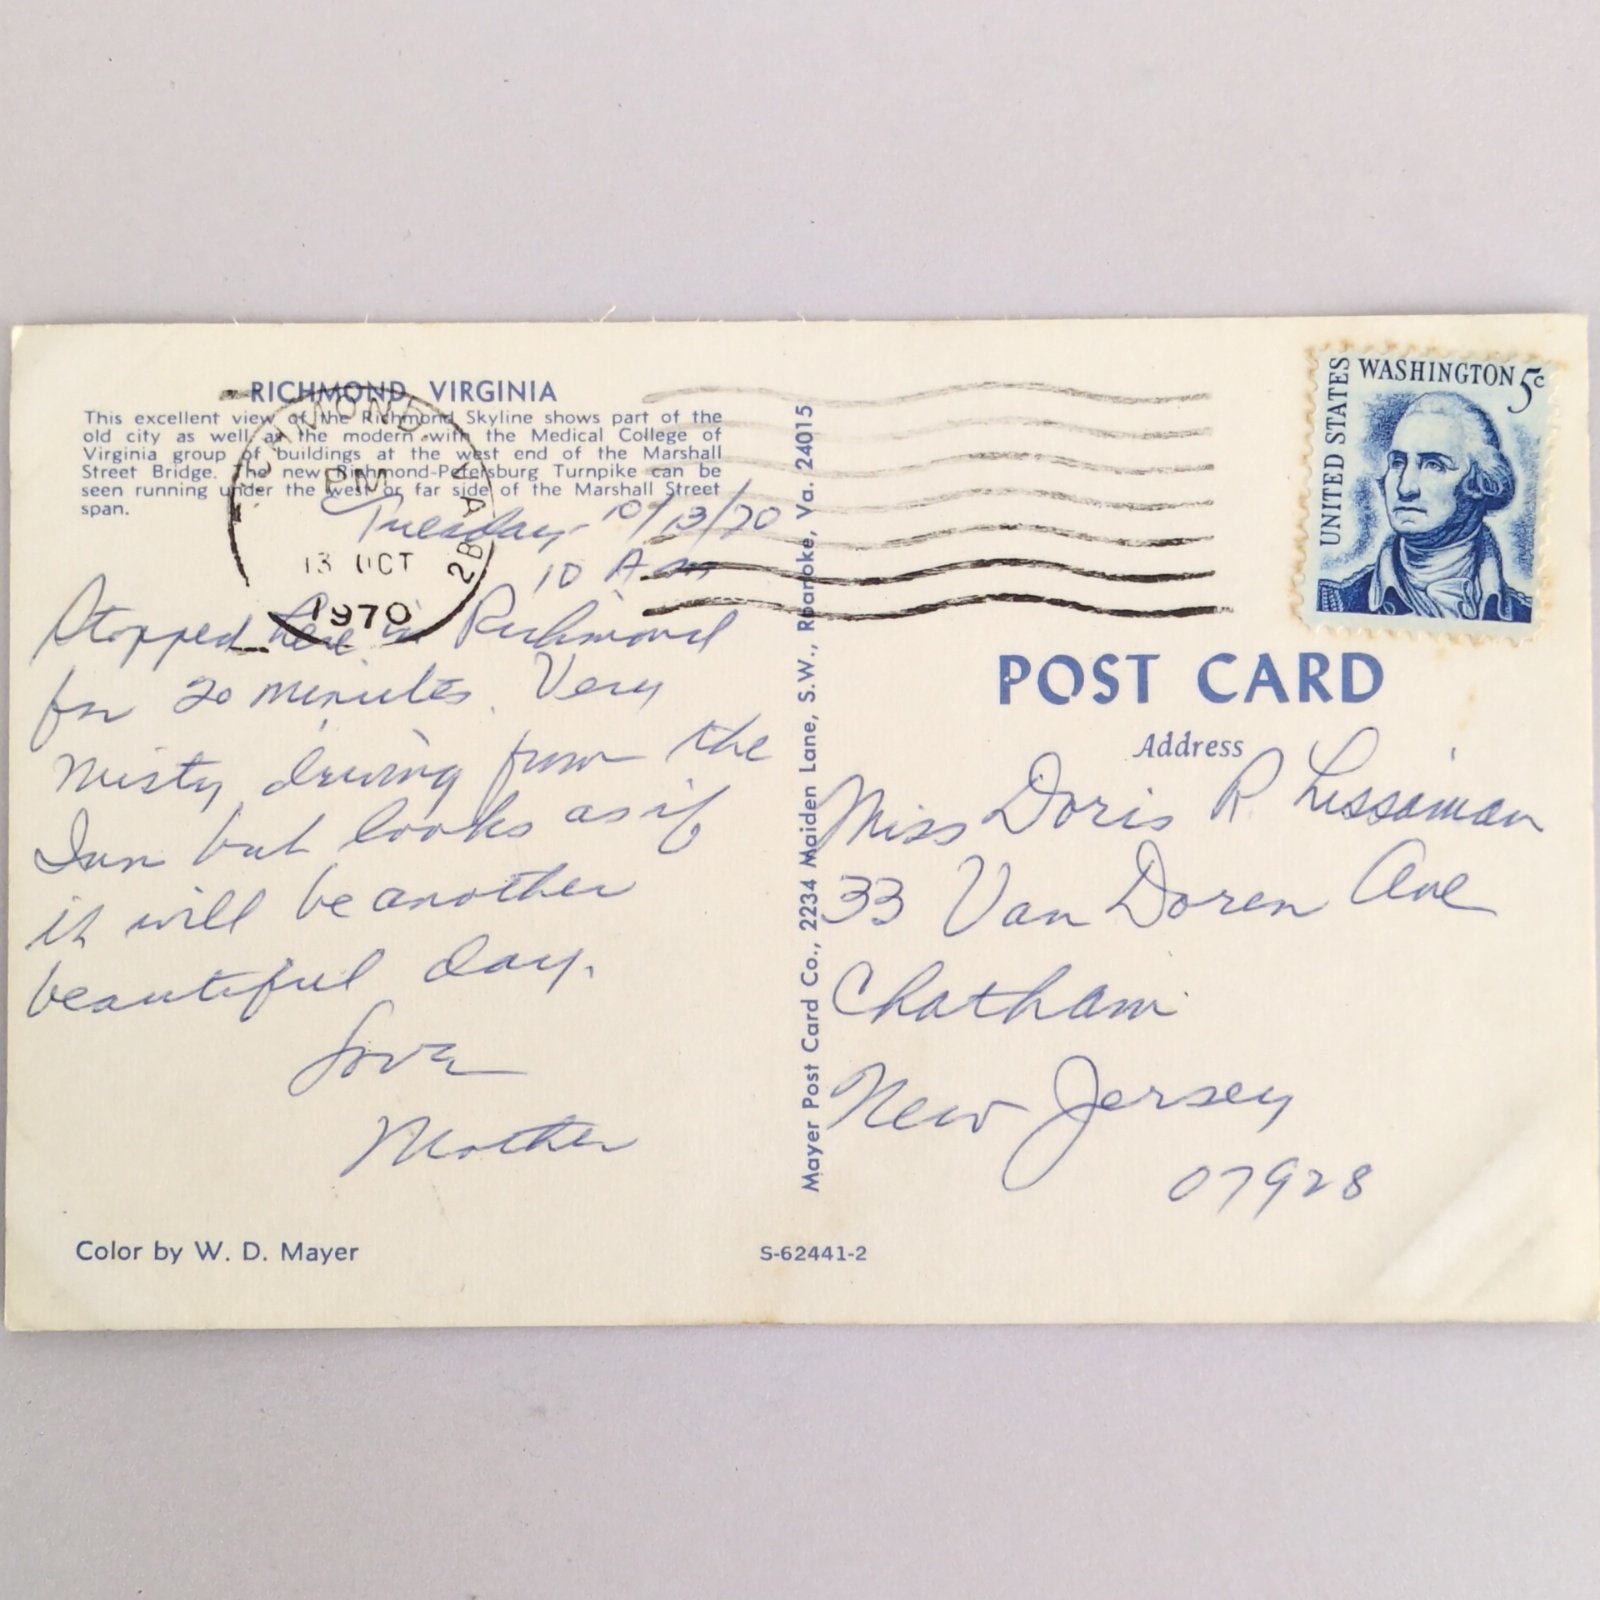 RICHMOND, VIRGINIA
This excellent view of the Richmond Skyline shows part of the
old city as well as the modern with the Medical College of
Virginia group of buildings at the west end of the Marshall
Street Bridge. The new Richmond-Petersburg Turnpike can be
seen running under the west or far side of the Marshall Street
span.
RICHMOND, VA
PM
13 OCT
1970
2B
Tuesday 10/13/70
10 A.M
Stopped here in Richmond
for 20 minutes. Very
Misty driving from the
Inn but looks as if
it will be another
beautiful day.
Love
Mother
Color by W. D. Mayer
Mayer Post Card Co., 2234 Maiden Lane, S.W., Roanoke, Va. 24015
S-62441-2
UNITED STATES
WASHINGTON 5c
POST CARD
Address
Miss Doris R Lissaman
33 Van Doren Ave
Chatham
New Jersey
07928